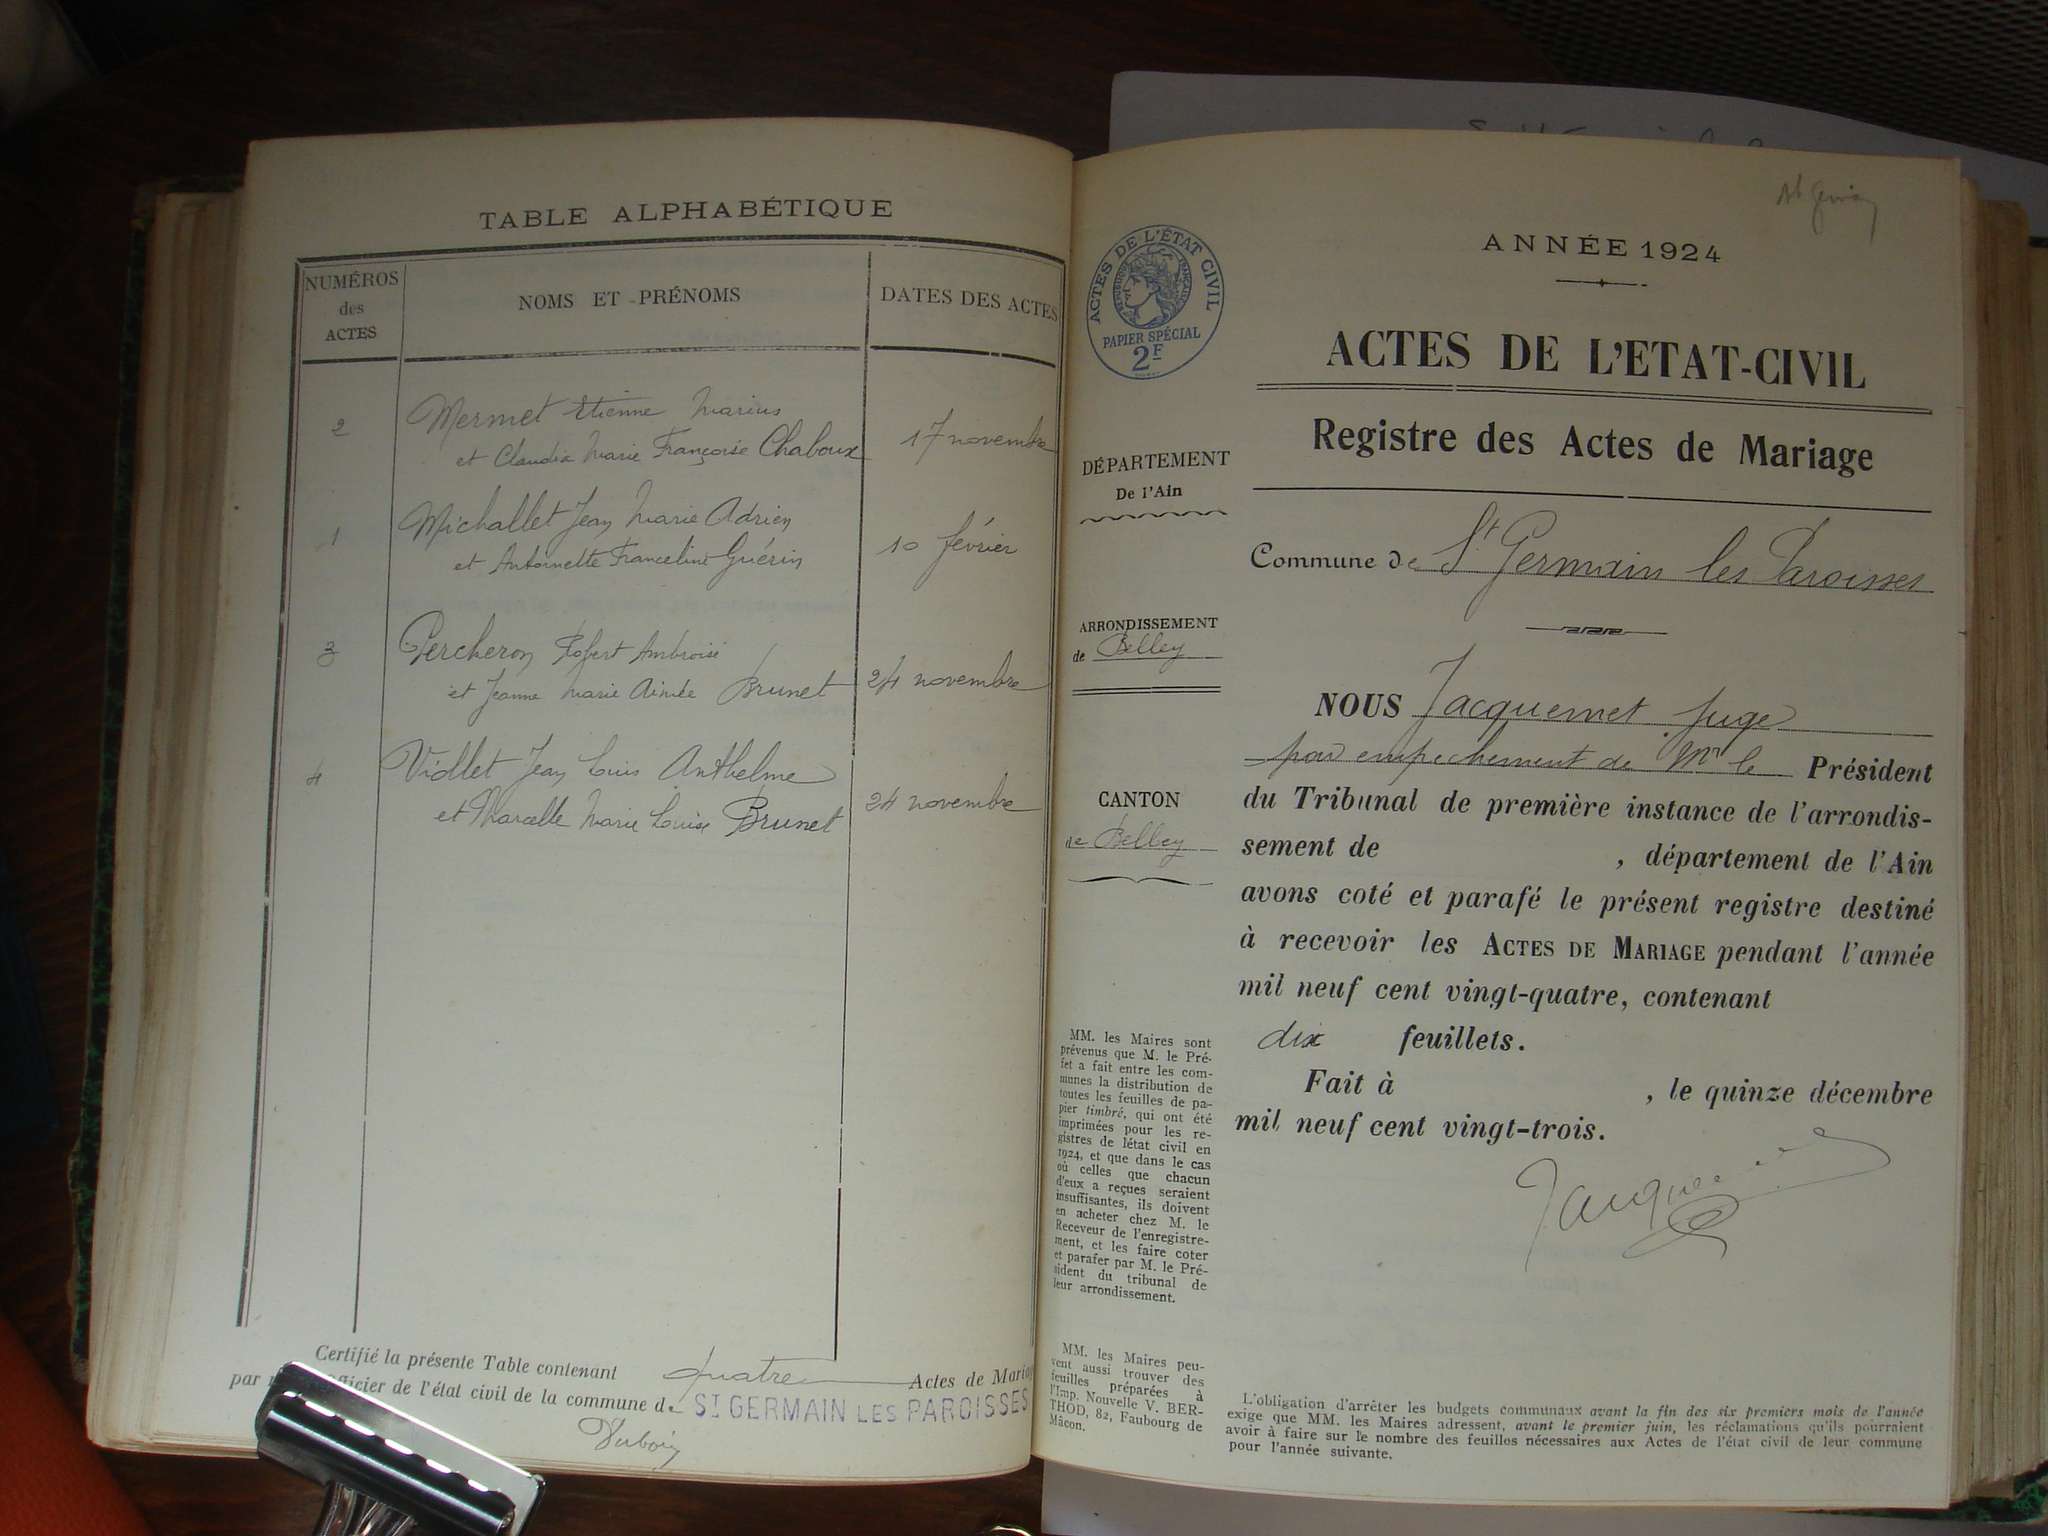 TABLE ALPHABÉTIQUE
NUMÉROS
des
ACTES
NOMS ET PRÉNOMS
DATES DES ACTES
2
Mermet Etienne Marius
et Claudia Marie Françoise Chaboux
17 novembre
1
Michallet Jean Marie Adrien
et Antoinette Franceline Guérin
10 février
3
Percheron Robert Ambroise
et Jeanne Marie Aimée Brunet
24 novembre
4
Viollet Jean Louis Anthelme
et Marcelle Marie Louise Brunet
24 novembre
Certifié la présente Table contenant quatre Actes de Mariag
par officier de l'état civil de la commune de ST GERMAIN LES PAROISSES
ANNÉE 1924
ACTES DE L'ÉTAT CIVIL
RÉPUBLIQUE FRANÇAISE
PAPIER SPÉCIAL
2F
ACTES DE L'ETAT-CIVIL
Registre des Actes de Mariage
DÉPARTEMENT
De l'Ain
Commune de St Germain les Paroisses
ARRONDISSEMENT
de Belley
CANTON
de Belley
NOUS Jacquemet Juge
par empechement de Mr le Président
du Tribunal de première instance de l'arrondis-
sement de , département de l'Ain
avons coté et parafé le présent registre destiné
à recevoir les ACTES DE MARIAGE pendant l'année
mil neuf cent vingt-quatre, contenant
dix feuillets.
Fait à , le quinze décembre
mil neuf cent vingt-trois.
MM. les Maires sont
prévenus que M. le Pré-
fet a fait entre les com-
munes la distribution de
toutes les feuilles de pa-
pier timbré, qui ont été
imprimées pour les re-
gistres de létat civil en
1924, et que dans le cas
où celles que chacun
d'eux a reçues seraient
insuffisantes, ils doivent
en acheter chez M. le
Receveur de l'enregistre-
ment, et les faire coter
et parafer par M. le Pré-
sident du tribunal de
leur arrondissement.
MM. les Maires peu-
vent aussi trouver des
feuilles préparées à
l'Imp. Nouvelle V. BER-
THOD, 82, Faubourg de
Mâcon.
L'obligation d'arrêter les budgets communaux avant la fin des six premiers mois de l'année
exige que MM. les Maires adressent, avant le premier juin, les réclamations qu'ils pourraient
avoir à faire sur le nombre des feuilles nécessaires aux Actes de l'état civil de leur commune
pour l'année suivante.